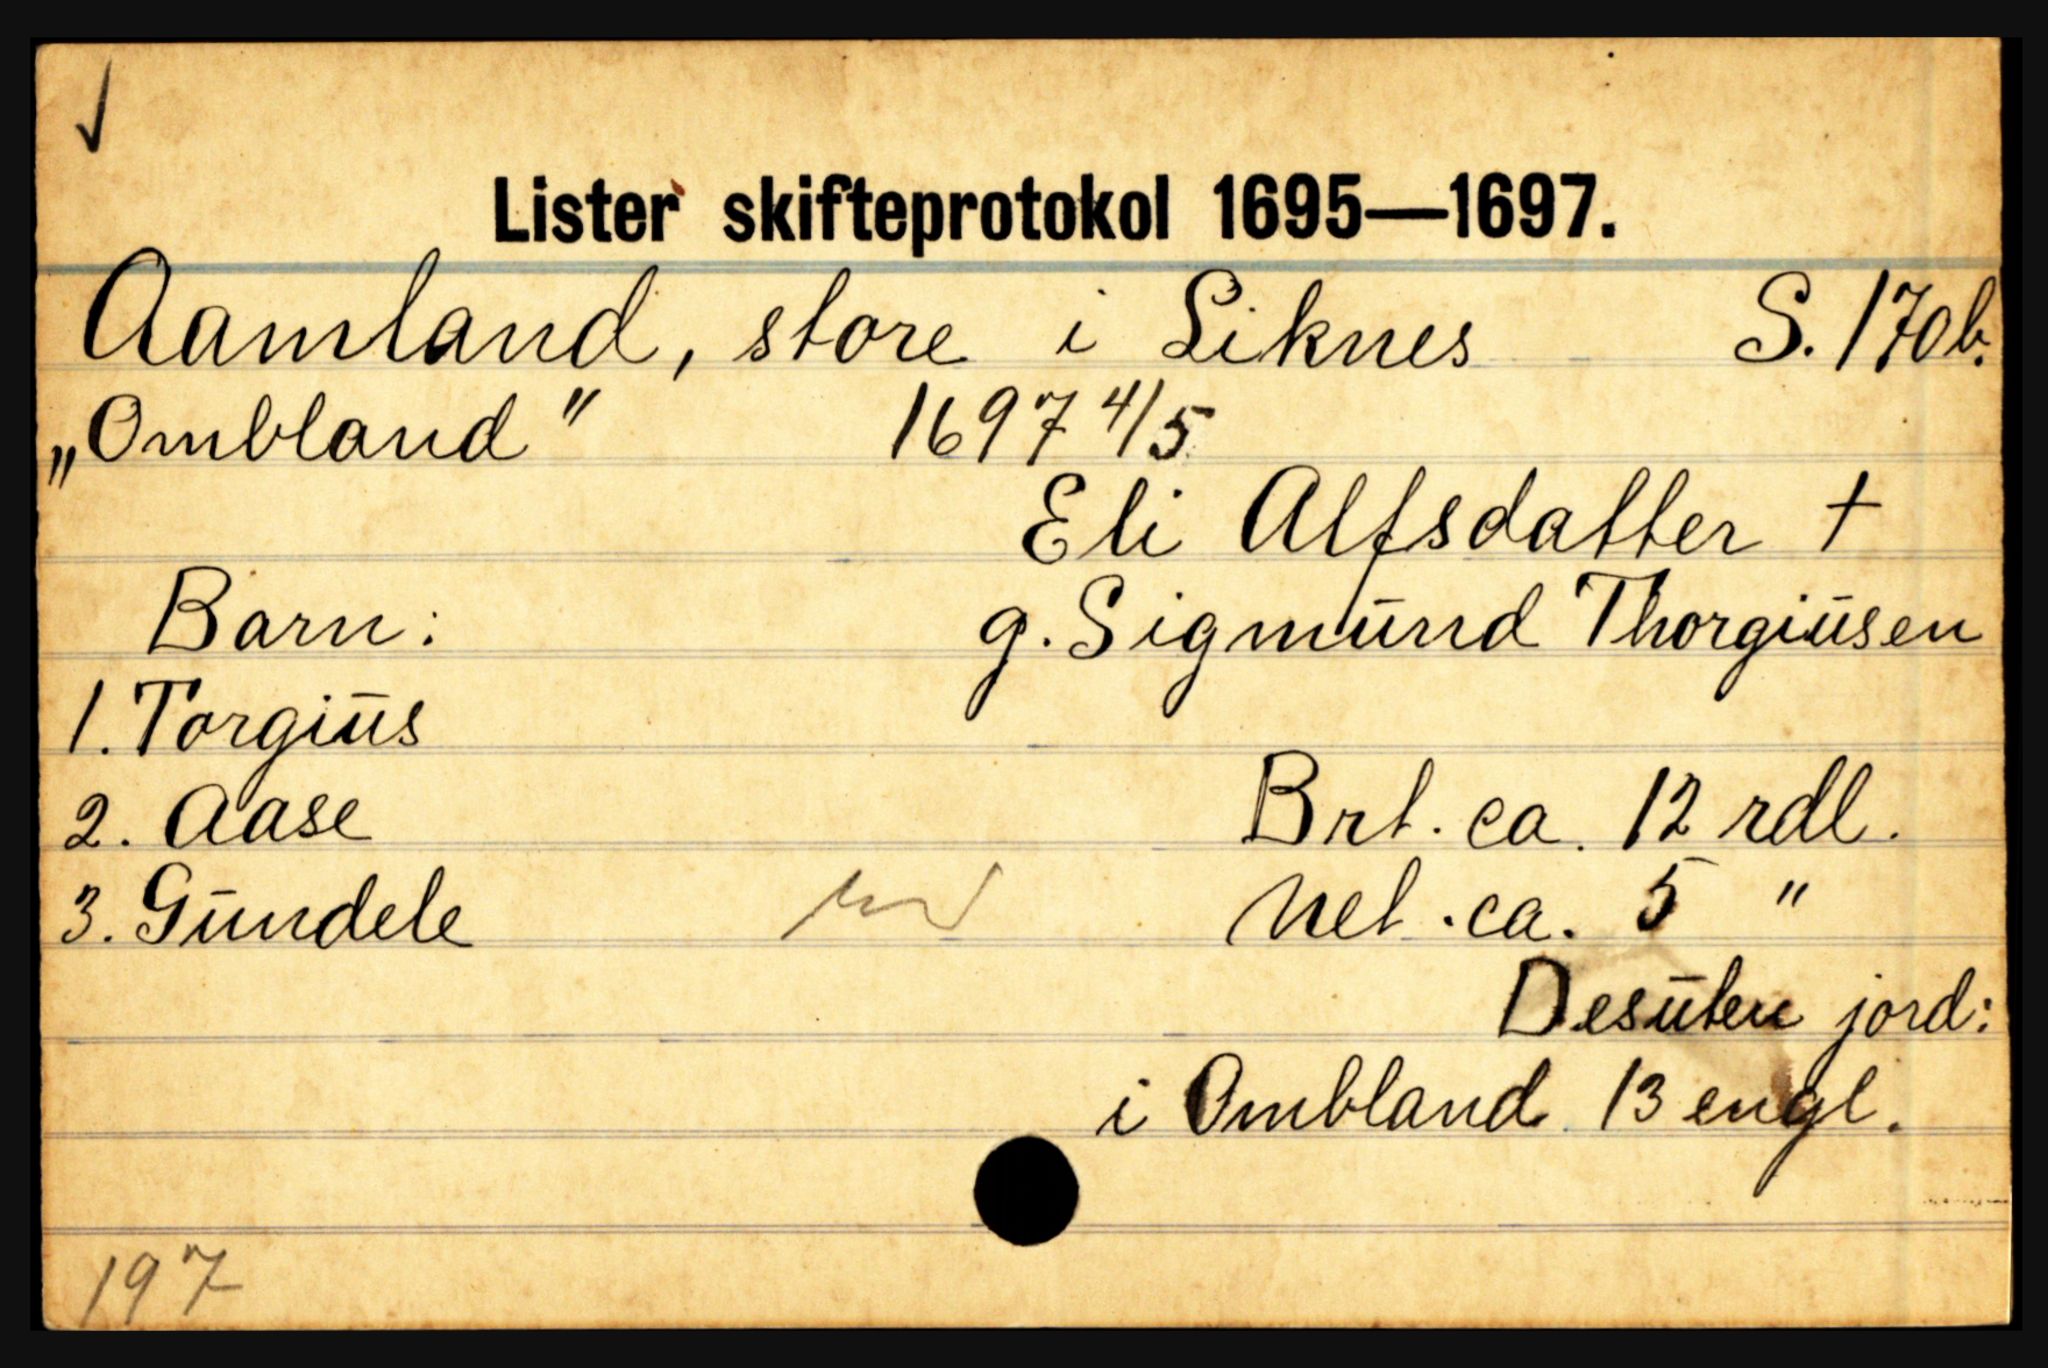 Lister skifteprotokol 1695—1697.
Aamland, store i Liknes S. 170b.
„Ombland" 1697 4/5
Eli Alfsdatter †
Barn: g. Sigmund Thorgiusen
1. Torgius
2. Aase Brt. ca. 12 rdl.
3. Gundele Net. ca. 5 "
Desuten jord:
i Ombland 13 engl.
197